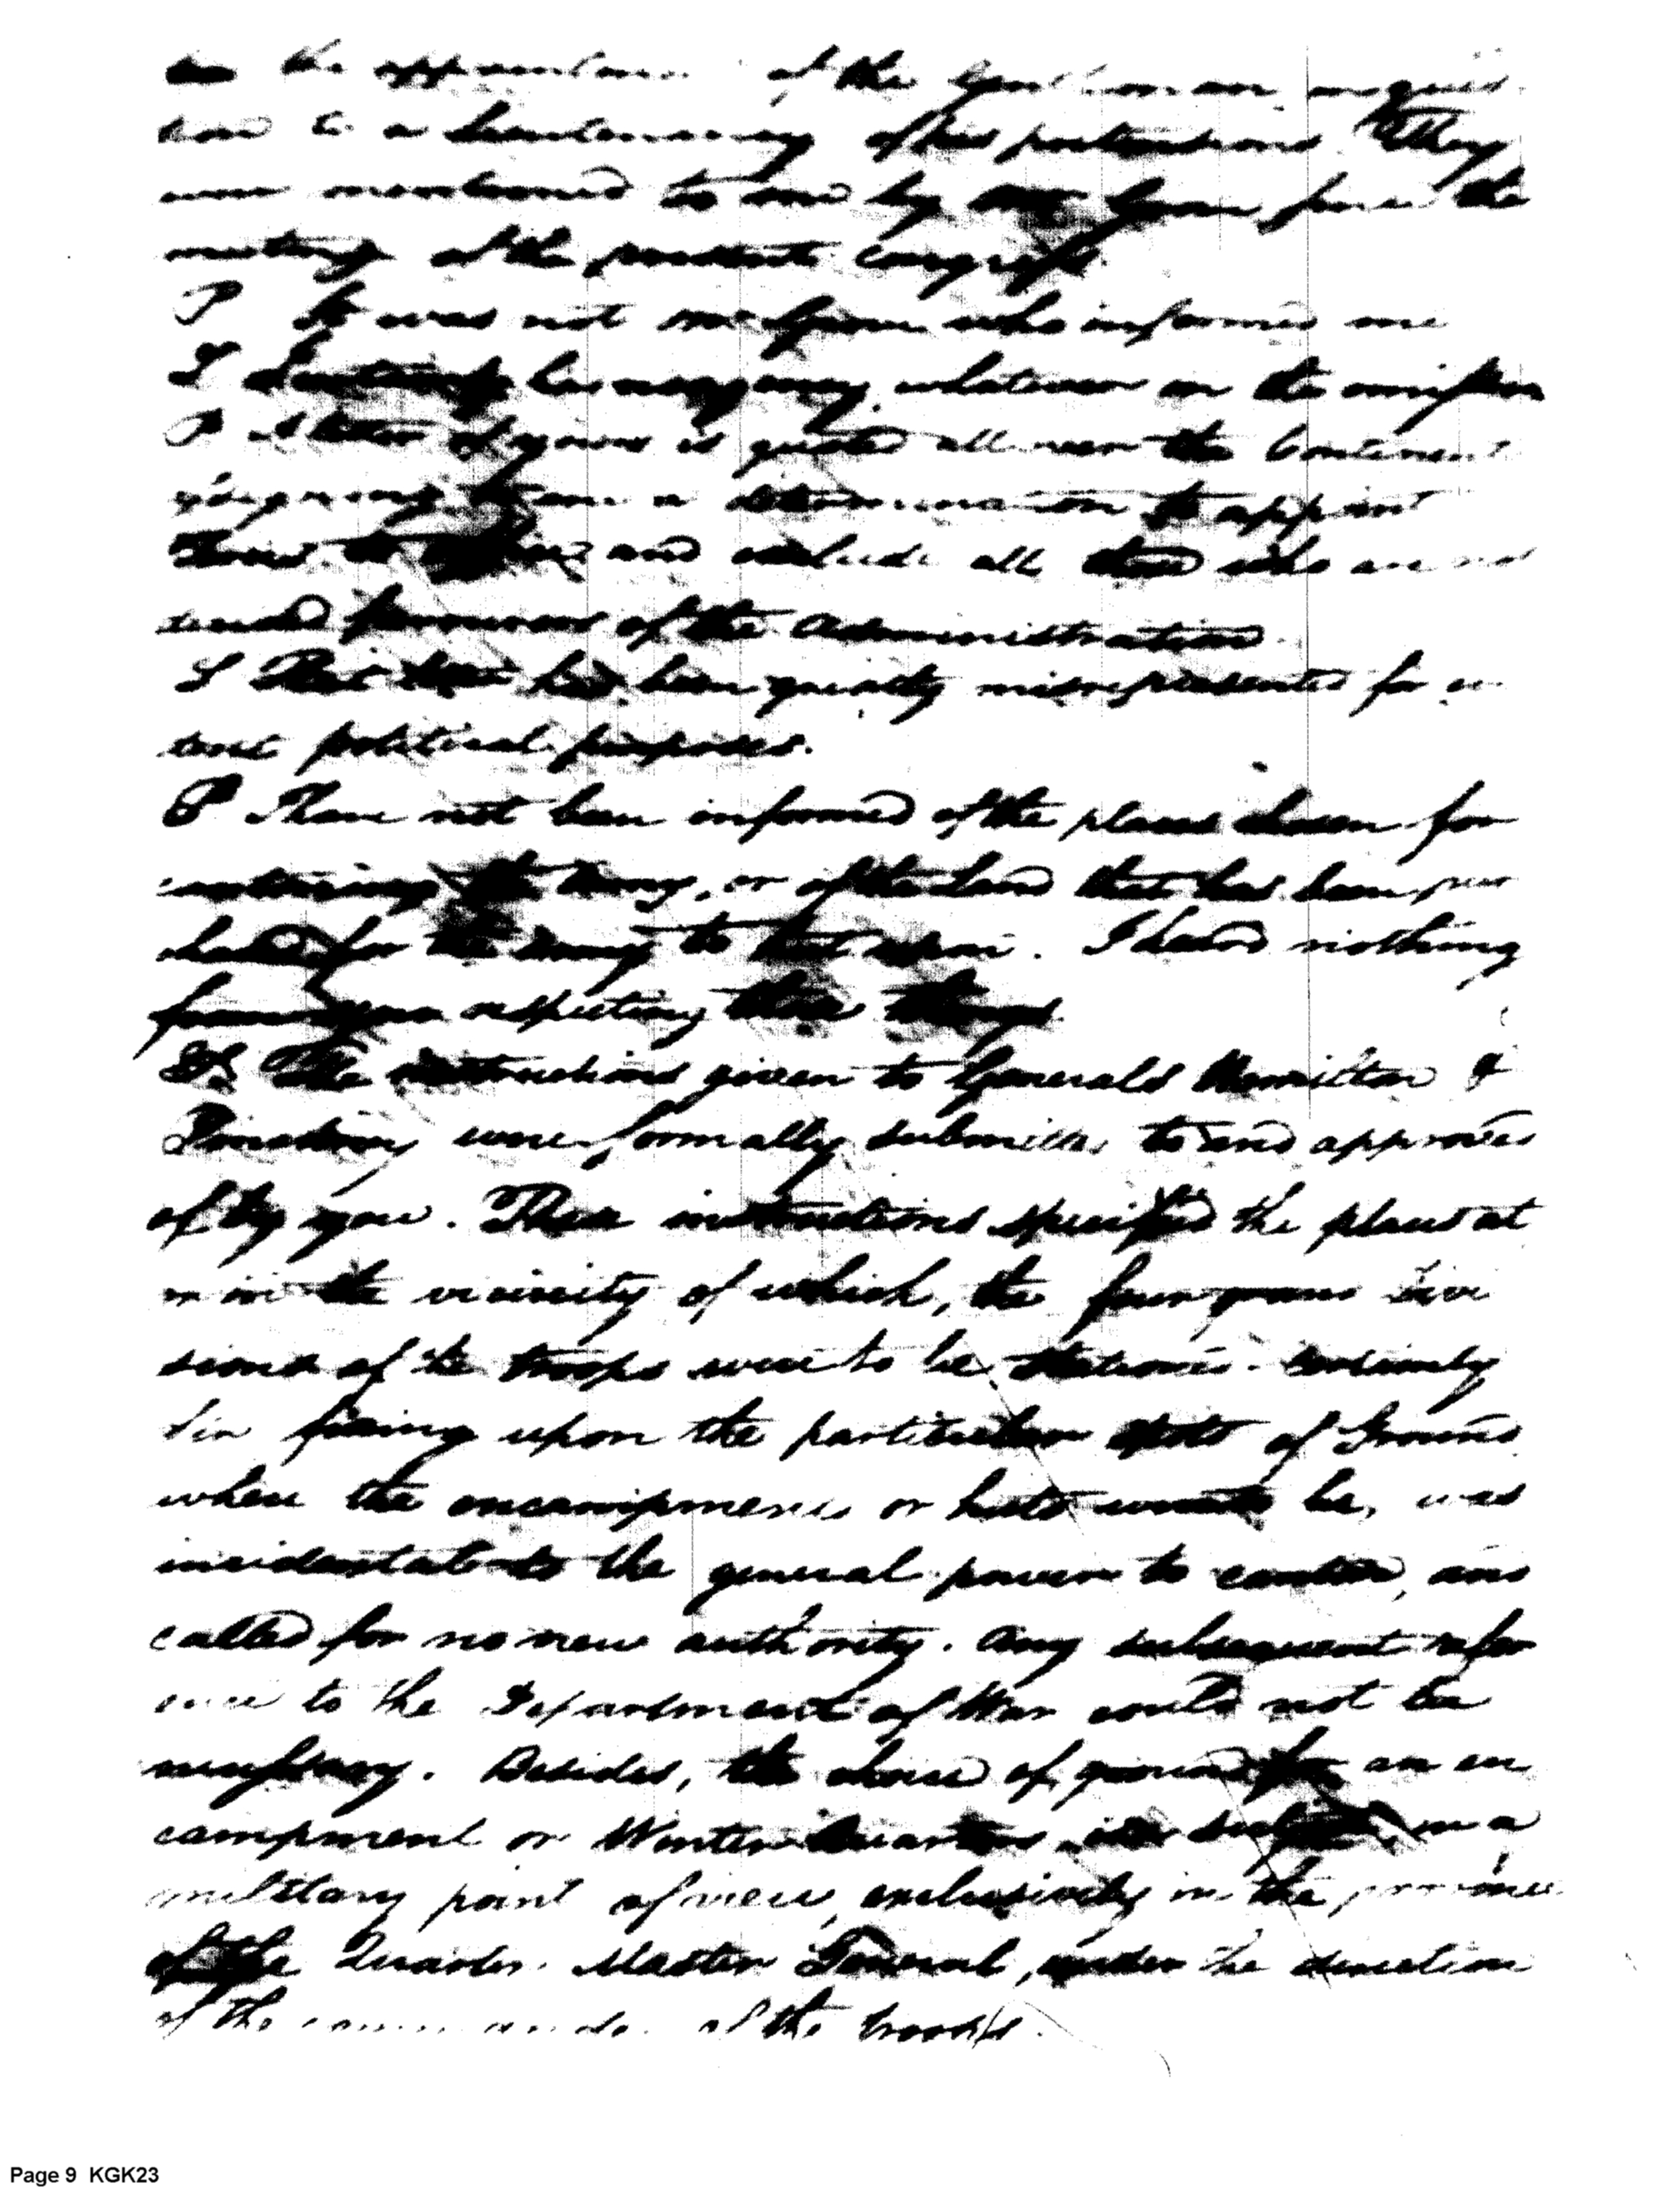 the of the Gentleman in ques
tion to a Lieutenancy of his pretentions They
were mentioned to me by Mr Gunn since the
meeting of the present Congress.
P It was not Mr Gunn who informed me
S any agency whatever in the omission
P A letter of yours is quoted all over the Continent
a determination to appoint
and exclude all those who are not
favourers of the Administration
S That letter has been greatly misrepresented for
political purposes.
P I have not been informed of the places chosen for
the Army, or of the Land that has been pur
chased for the Army to hut upon. I heard nothing
from you respecting these things
S The instructions given to Generals Hamilton &
Pinckney were formally submitted to and approved
of by you. These instructions specified the places at
or in the vicinity of which, the four grand divi
sions of the troops were to be stationed. Certainly
fixing upon the particular spots of Ground
where the encampments or huts would be, was
incidental to the general power to canton, and
called for no new authority. Any subsequent refer
ence to the Department of War could not be
necessary. Besides, the choice of ground for an en
campment or Winter Quarters, is a subject, in a
military point of view, exclusively in the province
of the Quarter Master General, under the direction
of the commander of the troops.
Page 9 KGK23